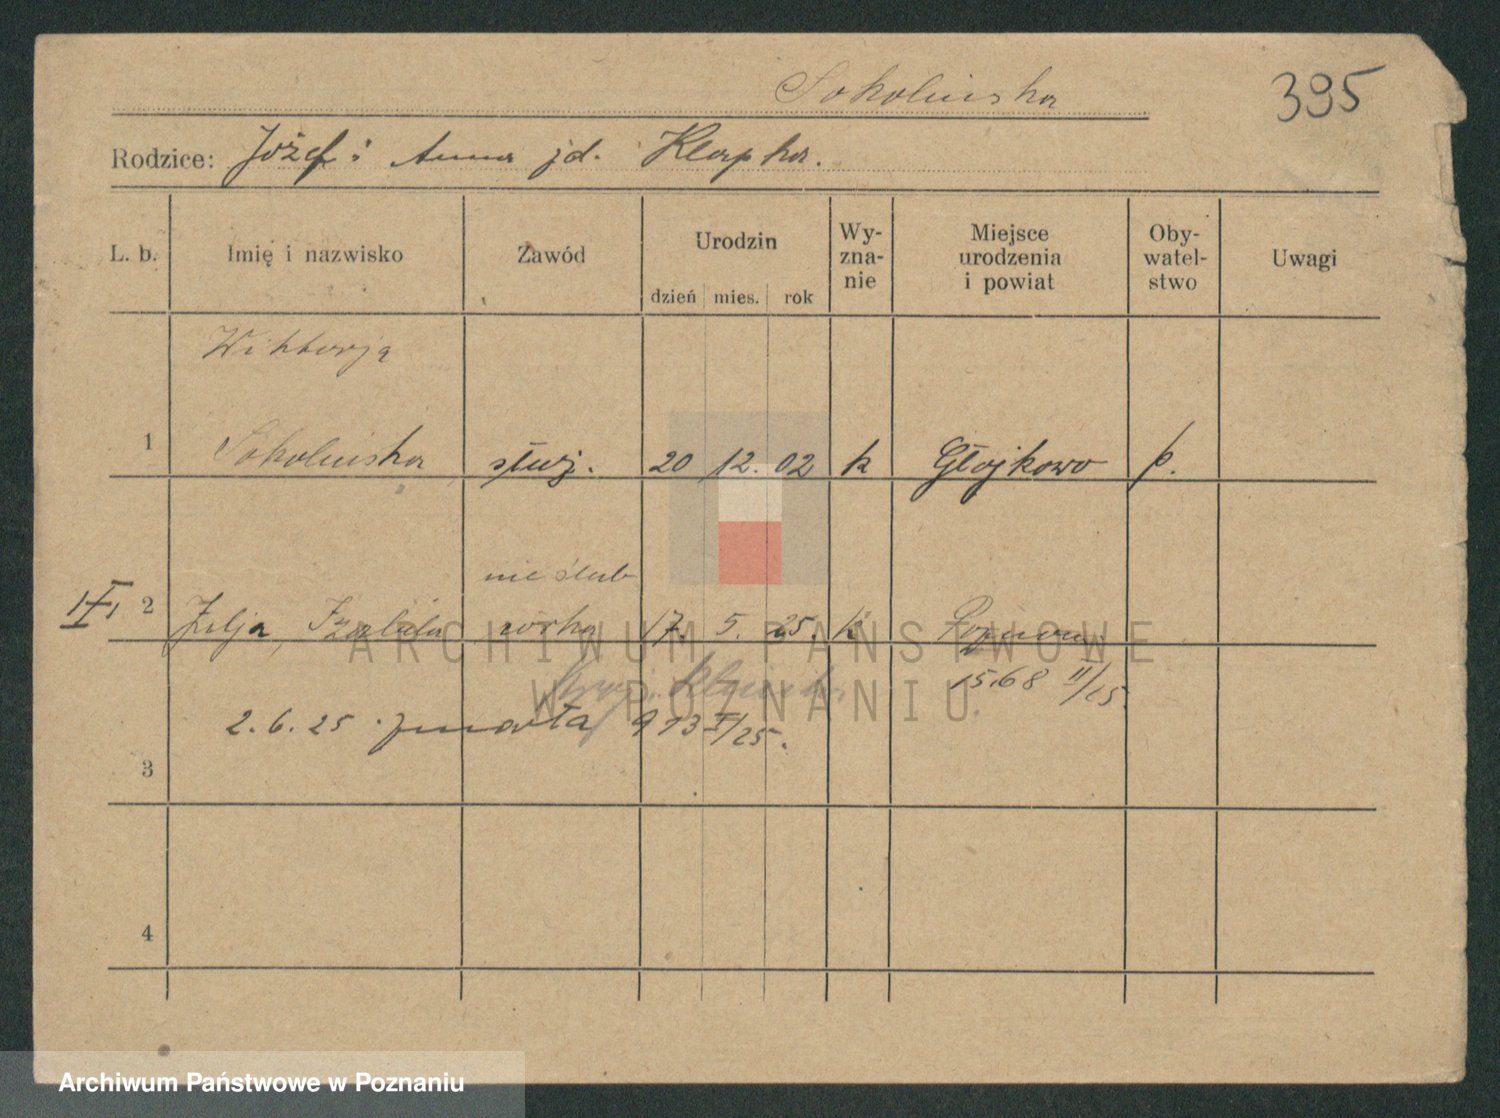 Sokolińska
395
Rodzice: Józef i Anna jd. Klapka.
L. b. Imię i nazwisko Zawód Urodzin dzień mies. rok Wy-zna-nie Miejsce urodzenia i powiat Oby-watel-stwo Uwagi
Wiktorja
1 Sokolińska służ. 20 12. 02 k Głojkowo p.
nieślub
2 Julja, Izabela córka 17. 5. 25. k Poznań
1568 II/25.
2. 6. 25 zmarła 973 I/25.
3
4
ARCHIWUM PAŃSTWOWE
W POZNANIU
Archiwum Państwowe w Poznaniu